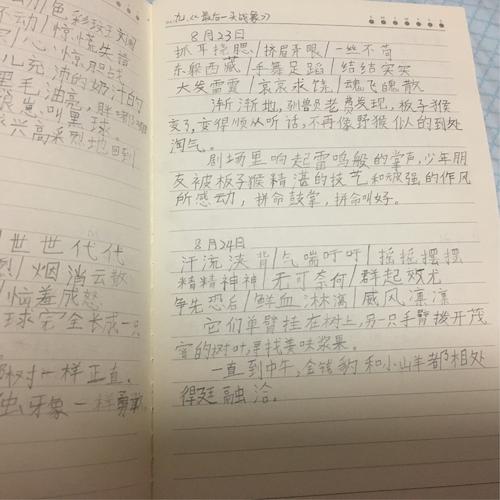 动/色彩
不动/惊慌失措
心惊胆战
儿充沛的奶汁的
黑毛油亮，胖
崽叫黑球。
兴高采烈地回到
世世代代
烟消云散
恼羞成怒
球完全长成一只
树一样正直。
牙象一样勇敢
九.《最后一头战象》
8月23日
抓耳挠腮/挤眉弄眼/一丝不苟
东躲西藏/手舞足蹈/结结实实
大发雷霆/哀哀求饶/魂飞魄散
渐渐地，驯兽员老费发现，板子猴
变了，变得顺从听话，不再像野猴似的到处
淘气。
剧场里响起雷鸣般的掌声，少年朋
友被板子猴精湛的技艺和顽强的作风
所感动，拼命鼓掌，拼命叫好。
8月24日
汗流浃背/气喘吁吁/摇摇摆摆
精精神神/无可奈何/群起效尤
争先恐后/鲜血淋漓/威风凛凛
它们单臂挂在树上，另一只手臂拨开茂
密的树叶，寻找美味浆果。
一直到中午，金钱豹和小山羊都相处
得廷融洽。